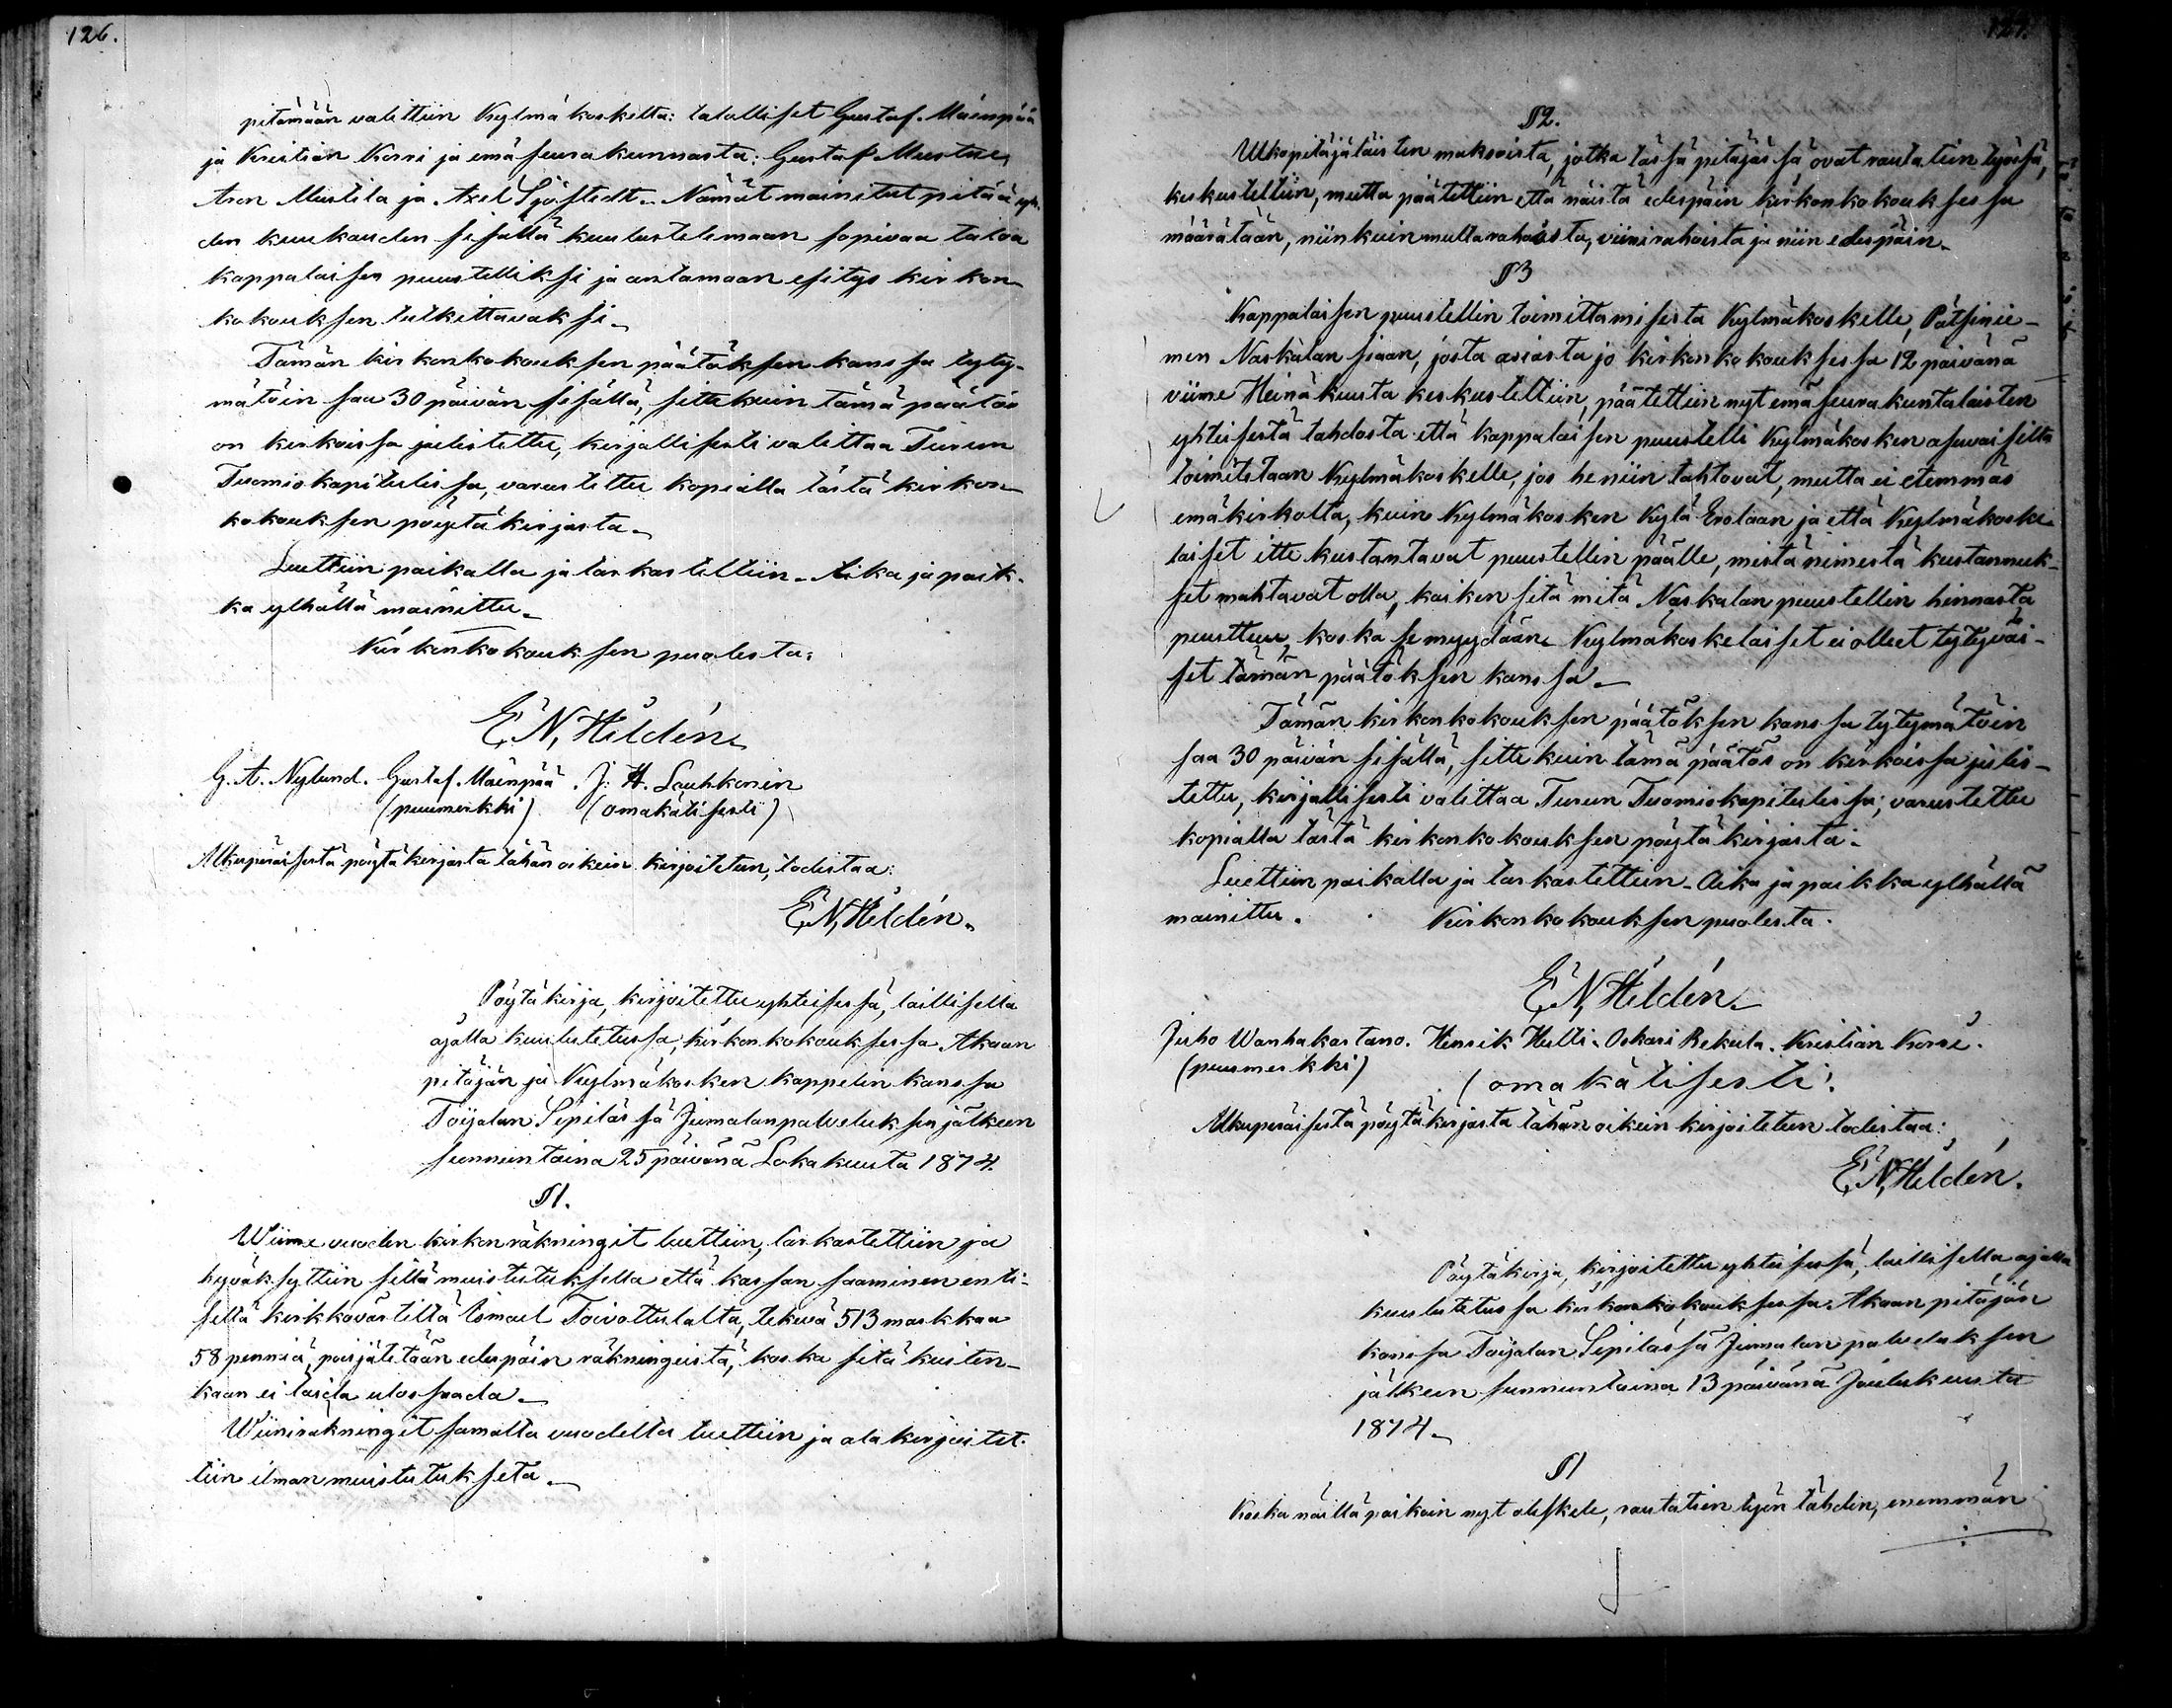 126.
pitämään valittiin Kylmäkoskelta: talolliset Gustaf Mäenpää
ja Kristian Korri ja emäseurakunnasta: Gustaf
Aron Mustila ja Axel Sjöstedt. Nämät mainitut pitää yh-
den kuukauden sisällä kuulustelemaan sopivaa taloa
kappalaisen puustelliksi ja antamaan esitys kirkon-
kokouksen tutkittavaksi.
Tämän kirkonkokouksen päätöksen kanssa tyty-
mätöin saa 30 päivän sisällä, sittekuin tämä päätös
on kirkoissa julistettu, kirjallisesti valittaa Turun
Tuomiokapitulissa, varustettu kopialla tästä kirkon-
kokouksen pöytäkirjasta.
Luettiin paikalla ja tarkastettiin. Aika ja paik-
ka ylhällä mainittu.
Kirkonkokouksen puolesta:
E. N. Hildén.
G. A. Nylund. Gustaf Mäenpää. J. H. Lauhkonen
(puumerkki) (omakätisesti)
Alkuperäisestä pöytäkirjasta tähän oikein kirjoitetun, todistaa:
E. N. Hildén.
Pöytäkirja, kirjoitettu yhteisessä, laillisella
ajalla kuulutetussa, kirkonkokouksessa Akaan
pitäjän ja Kylmäkosken kappelin kanssa
Toijalan Sepilässä Jumalanpalveluksen jälkeen
sunnuntaina 25 päivänä Lokakuuta 1874.
§1.
Wiime vuoden kirkonräkningit luettiin, tarkastettiin ja
hyväksyttiin sillä muistutuksella että kassan saaminen enti-
seltä kirkkovärtiltä Ismael Toivottulalta, tekevä 513 markkaa
58 penniä, poisjätetään edespäin räkningeistä, koska sitä kuiten-
kaan ei taida ulossaada.
Wiiniräkningit samalta vuodelta luettiin ja alakirjoitet-
tiin ilman muistutukseta.
127.
§2.
Ulkopitäjäläisten maksoista, jotka tässä pitäjässä ovat rautatien työssä,
keskusteltiin, mutta päätettiin että näistä edespäin kirkonkokouksessa
määrätään, niinkuin multarahoista, viinirahoista ja niin edespäin.
§3
Kappalaisen puustellin toimittamisesta Kylmäkoskelle, Pätsinie-
men Naskalan siaan, josta asiasta jo kirkonkokouksessa 12 päivänä
viime Heinäkuuta keskusteltiin, päätettiin nyt emäseurakuntalaisten
yhteisestä tahdosta että kappalaisen puustelli Kylmäkosken asuvaisilta
toimitetaan Kylmäkoskelle, jos he niin tahtovat, mutta ei etemmäs
emäkirkolta, kuin Kylmäkosken Kylä Erolaan ja että Kylmäkoske-
laiset itte kustantavat puustellin päälle, mistä nimestä kustannuk-
set mahtavat olla, kaiken sitä mitä Naskalan puustellin hinnasta
puuttuu koska se myydään. Kylmäkoskelaiset ei olleet tytyväi-
set tämän päätöksen kanssa.
Tämän kirkonkokouksen päätöksen kanssa tytymätöin
saa 30 päivän sisällä, sittekuin tämä päätös on kirkoissa julis-
tettu, kirjallisesti valittaa Turun Tuomiokapitulissa, varustettu
kopialla tästä kirkonkokouksen pöytäkirjasta.
Luettiin paikalla ja tarkastettiin. Aika ja paikka ylhällä
mainittu. Kirkonkokouksen puolesta.
E. N. Hildén.
Juho Wanhakartano. Henrik Hulli. Oskari Rekula. Kristian Korri.
(puumerkki) (omakätisesti)
Alkuperäisestä pöytäkirjasta tähän oikein kirjoitetun todistaa:
E. N. Hildén.
Pöytäkirja, kirjoitettu yhteisessä, laillisella ajalla
kuulutetussa kirkonkokouksessa Akaan pitäjän
kanssa Toijalan Sepilässä Jumalanpalveluksen
jälkeen sunnuntaina 13 päivänä Joulukuuta
1874.
§1
Koska näillä paikoin nyt oleskele, rautatien työn tähden, enemmän